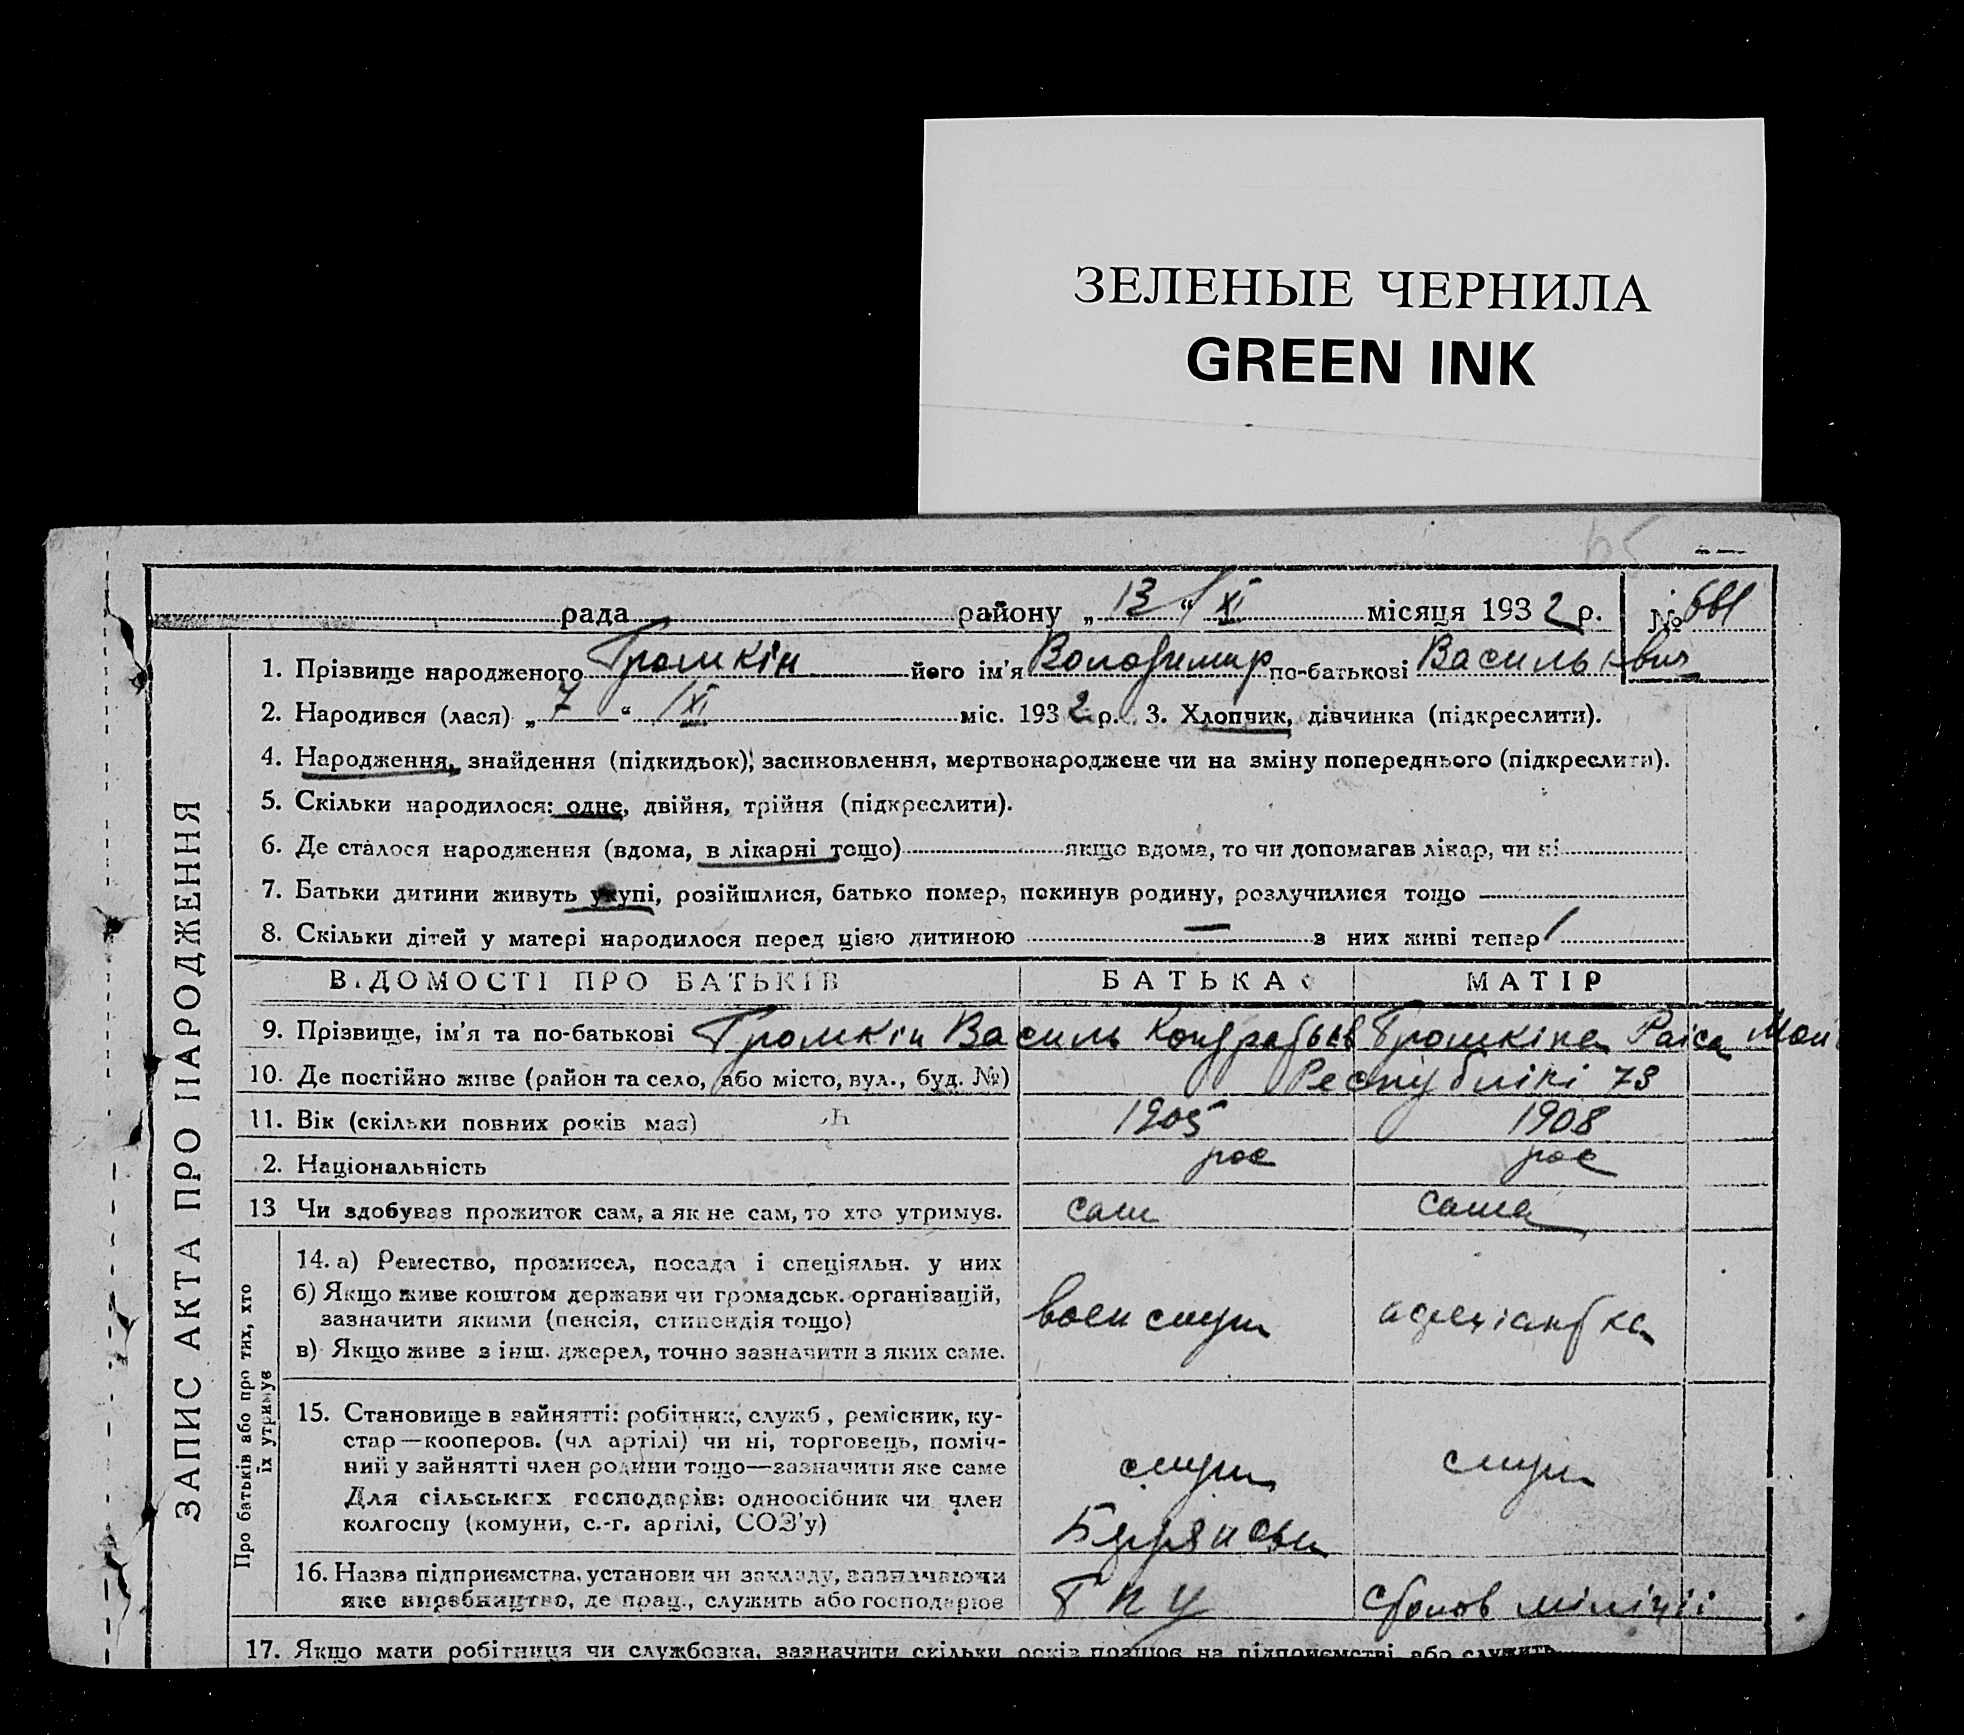 ЗЕЛЕНЫЕ ЧЕРНИЛА
GREEN INK
рада району „13“ XI місяця 1932 р. № 661
ЗАПИС АКТА ПРО НАРОДЖЕННЯ
1. Прізвище народженого Громкін його ім'я Володимир по-батькові Васильович
2. Народився (лася) „7“ XI міс. 1932 р. 3. Хлопчик, дівчинка (підкреслити).
4. Народження, знайдення (підкидьок), засиновлення, мертвонароджене чи на зміну попереднього (підкреслити).
5. Скільки народилося: одне, двійня, трійня (підкреслити).
6. Де сталося народження (вдома, в лікарні тощо) якщо вдома, то чи допомагав лікар, чи ні
7. Батьки дитини живуть укупі, розійшлися, батько помер, покинув родину, розлучилися тощо
8. Скільки дітей у матері народилося перед цією дитиною — з них живі тепер 1
ВІДОМОСТІ ПРО БАТЬКІВ БАТЬКА МАТІР
9. Прізвище, ім'я та по-батькові Громкін Василь Кондратьев Громкіна Раіса
10. Де постійно живе (район та село, або місто, вул., буд. №) Республікі 73
11. Вік (скільки повних років має) 1905 1908
2. Національність рос рос
13 Чи здобуває прожиток сам, а як не сам, то хто утримує. сам сама
Про батьків або про тих, хто їх утримує
14. а) Ремество, промисел, посада і спеціяльн. у них
б) Якщо живе коштом держави чи громадськ. організацій,
зазначити якими (пенсія, стипендія тощо) воен служ
в) Якщо живе з інш. джерел, точно зазначити з яких саме.
15. Становище в зайнятті: робітник, служб., ремісник, ку-
стар—кооперов. (чл артілі) чи ні, торговець, поміч-
ний у зайнятті член родини тощо—зазначити яке саме служ служ
Для сільських господарів: одноосібник чи член
колгоспу (комуни, с.-г. артілі, СОЗ'у)
16. Назва підприємства, установи чи закладу, зазначаючи
яке виробництво, де прац., служить або господарює ГПУ міліціі
17. Якщо мати робітниця чи службовка, зазначити скільки років працює на підприємстві або служить